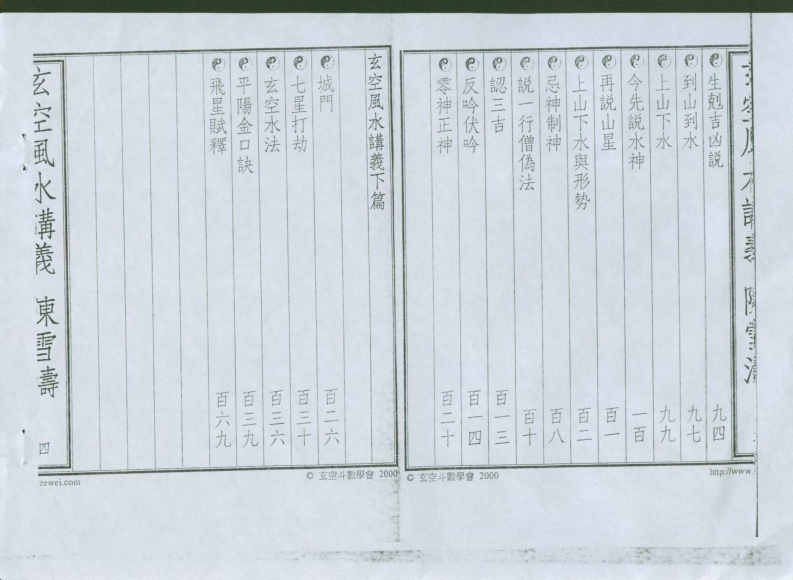 生剋吉凶説 九四
到山到水 九七
上山下水 九九
今先説水神 一百
再説山星 百一
上山下水與形勢 百二
忌神制神 百八
説一行僧偽法 百十
認三吉 百一三
反吟伏吟 百一四
零神正神 百二十
© 玄空斗數學會 2000
http://www.
玄空風水講義下篇
城門 百二六
七星打劫 百三十
玄空水法 百三六
平陽金口訣 百三九
飛星賦釋 百六九
玄空風水講義 陳雪濤
四
© 玄空斗數學會 2000
zewei.com